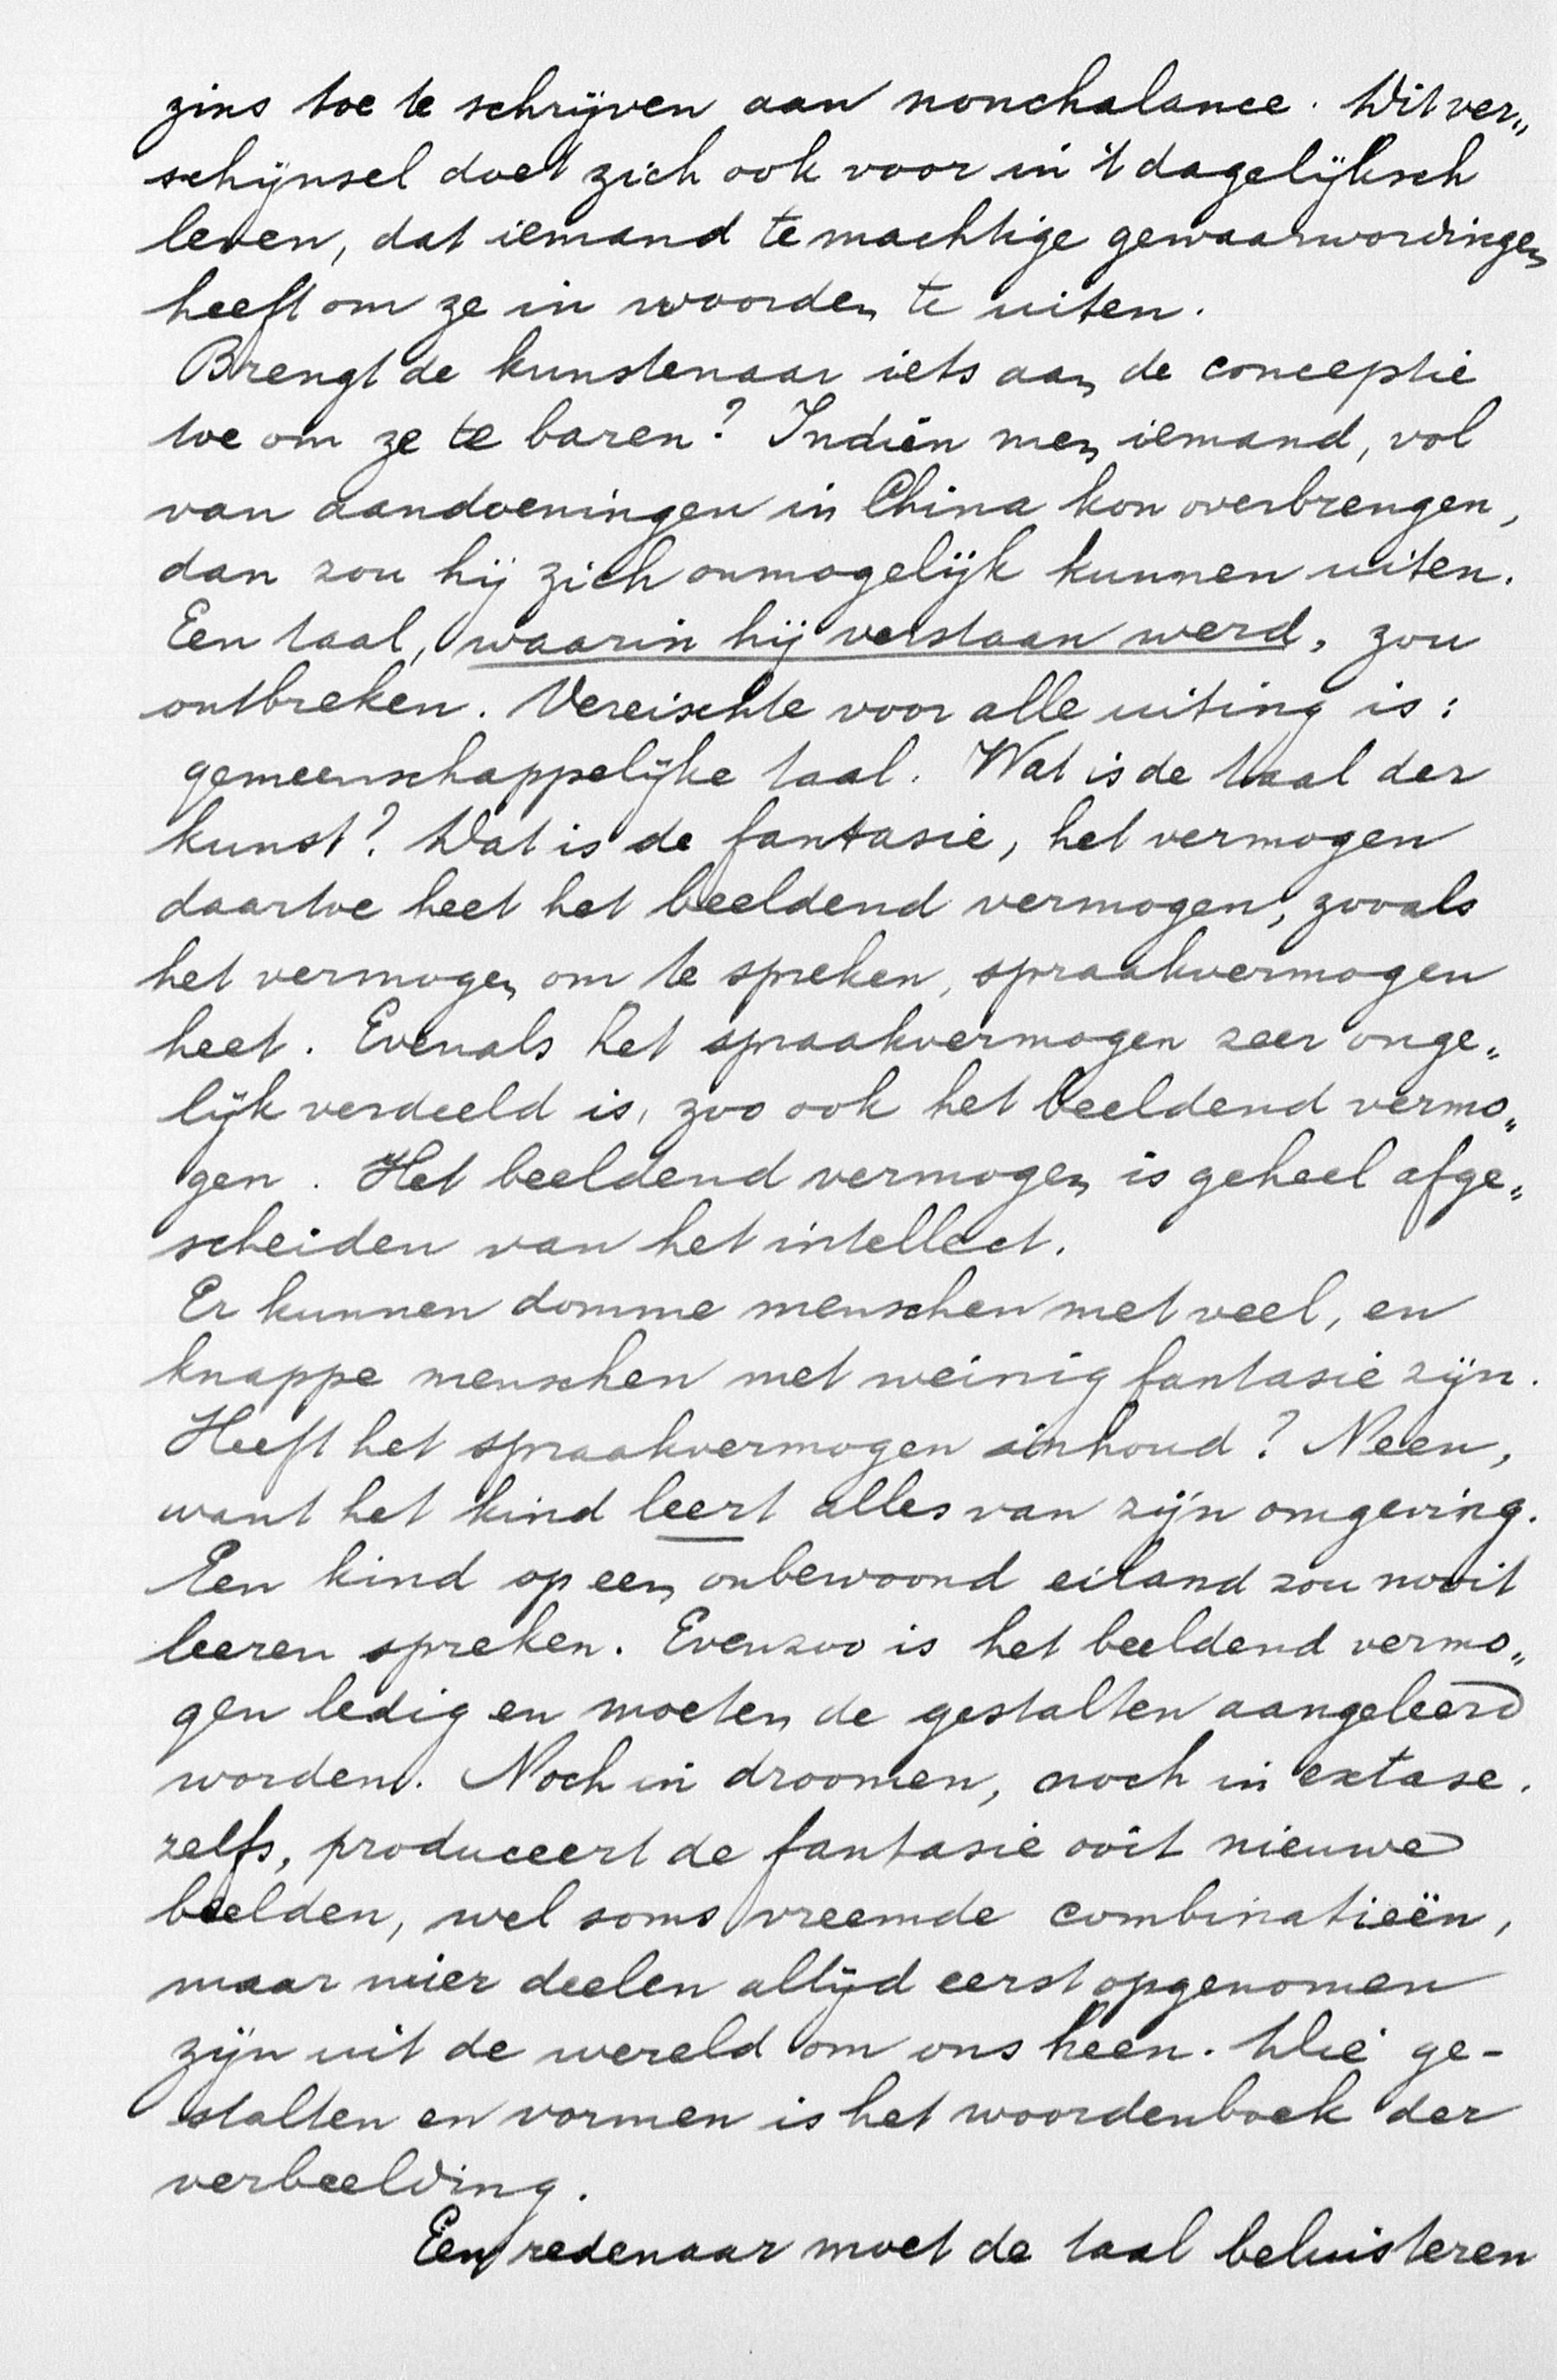 zins toe te schrijven aan nonchalance. Dit ver„
schijnsel doet zich ook voor in 't dagelijksch
leven, dat iemand te machtige gewaarwordingen
heeft om ze in woorden te uiten.
Brengt de kunstenaar iets aan de conceptie
toe om ze te baren? Indien men iemand, vol
van aandoeningen in China kon overbrengen,
dan zou hij zich onmogelijk kunnen uiten.
Een taal, waarin hij verstaan werd, zou
ontbreken. Vereischte voor alle uiting is:
gemeenschappelijke taal. Wat is de taal der
kunst? Dat is de fantasie, het vermogen
daartoe heet het beeldend vermogen, zooals
het vermogen om te spreken, spraakvermogen
heet. Evenals het spraakvermogen zeer onge„
lijk verdeeld is, zoo ook het beeldend vermo„
gen. Het beeldend vermogen is geheel afge„
scheiden van het intellect.
Er kunnen domme menschen met veel, en
knappe menschen met weinig fantasie zijn.
Heeft het spraakvermogen inhoud? Neen,
want het kind leert alles van zijn omgeving.
Een kind op een onbewoond eiland zou nooit
leeren spreken. Evenzoo is het beeldend vermo„
gen ledig en moeten de gestalten aangeleerd
worden. Noch in droomen, noch in extase.
zelfs, produceert de fantasie ooit nieuwe
beelden, wel soms vreemde combinatieën,
maar wier deelen altijd eerst opgenomen
zijn uit de wereld om ons heen. Die ge-
stalten en vormen is het woordenboek der
verbeelding.
Een redenaar moet de taal beluisteren